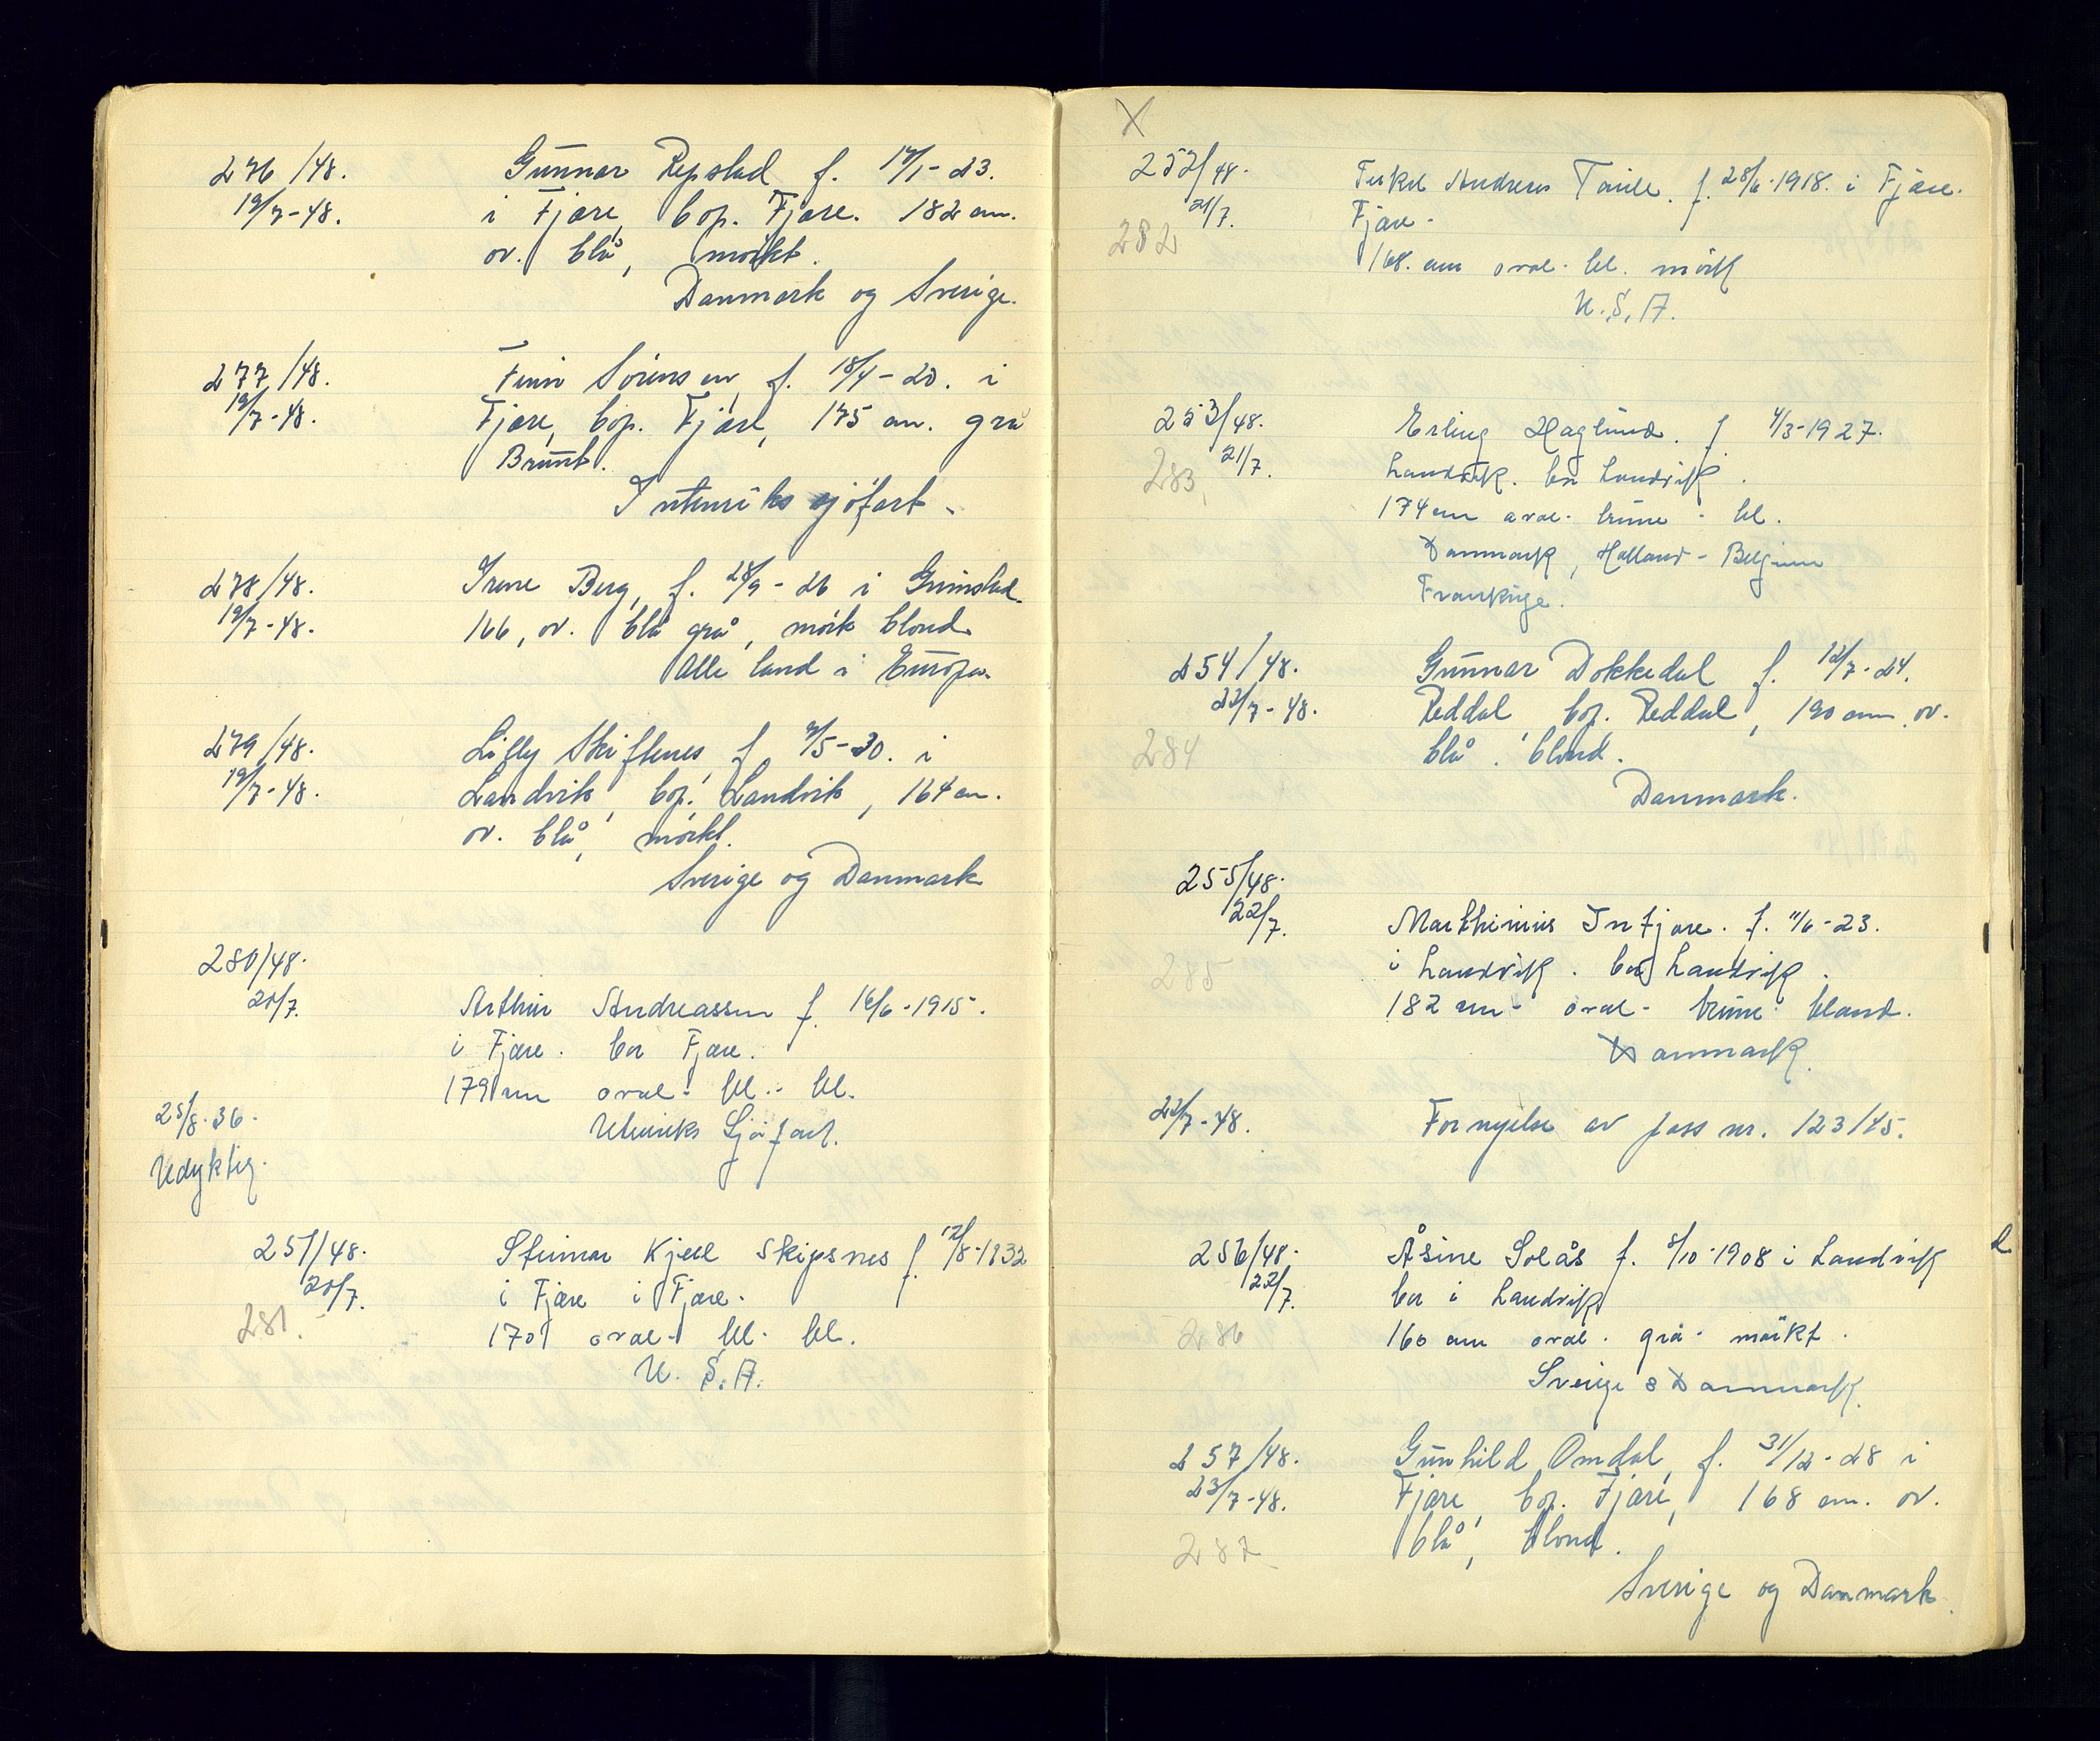 276/48. Gunnar Repstad f. 17/1-23.
19/7-48. i Fjære, bop. Fjære. 182 cm.
ov. blå, mørkt.
Danmark og Sverige.
277/48. Finn Sörensen, f. 18/4-20. i
19/7-48. Fjære, bop. Fjære, 175 cm. grå
Brunt.
I utenriks sjöfart.
278/48. Irene Berg, f. 28/9-26 i Grimstad.
19/7-48. 166, ov. blå grå, mörk blond.
Alle land i Europa.
279/48. Lilly Skiftenes, f. 9/5-30. i
19/7-48. Landvik, bop. Landvik, 164 cm.
ov. blå, mörkt.
Sverige og Danmark
280/48.
20/7. Arthur Andreassen f. 16/6-1915.
i Fjære. bor Fjære.
179 cm oval - bl. - bl.
25/8.36. Utenriks Sjöfart.
Udyktig.
251/48. Steinar Kjell Skipsnes f. 12/8-1932
20/7. i Fjære i Fjære.
281. 170 oval - bl - bl.
U.S.A.
X
252/48. Terkel Andreas f. 28/6-1918. i Fjære.
21/7. Fjære.
282
168. cm oval - bl. mörk
U.S.A.
253/48. Erling Haglund. f. 4/3-1927.
21/7. Landvik. bor Landvik.
283, 174 cm oval - brune - bl.
Danmark, Holland - Belgien
Frankrige.
254/48. Gunnar Dokkedal f. 12/7-24.
22/7-48. Reddal, bop. Reddal, 190 cm. ov.
284 blå. blond.
Danmark.
255/48.
22/7. Marthinius Injære. f. 11/6-23.
285 i Landvik. bor Landvik.
182 cm - oval - brune bland.
Danmark.
22/7-48. Fornyelse av pass nr. 123/45.
256/48. Åsine Solås f. 8/10-1908 i Landvik
22/7. bor i Landvik
286 160 cm oval. grå - mörkt.
Sverige & Danmark.
257/48. Gunhild Omdal, f. 31/12-28 i
23/7-48. Fjære, bop. Fjære, 168 cm. ov.
287 blå, blond.
Sverige og Danmark.